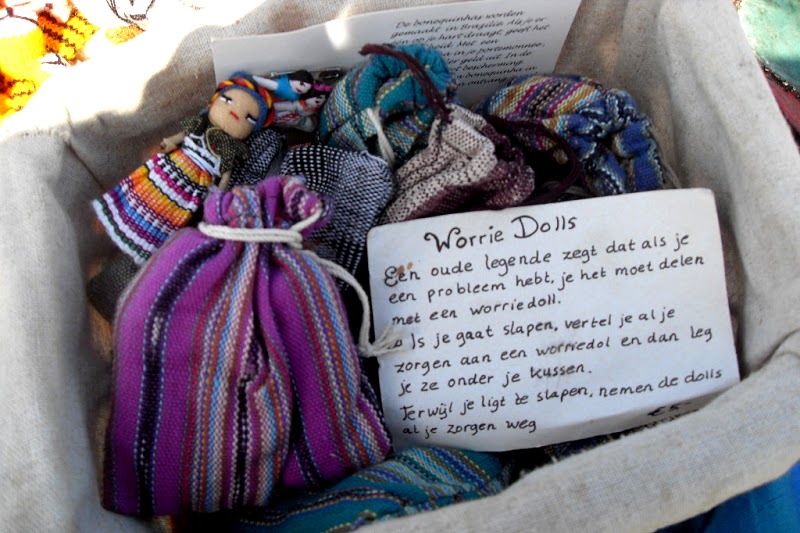 De bonequinhas worden
gemaakt in Brazilië. Als je er
op je hart draagt, geeft het
Met een
in je portemonnee,
geld uit. In de
bescherming
bonequinha in
Worrie Dolls
Een oude legende zegt dat als je
een probleem hebt, je het moet delen
met een worriedoll.
Als je gaat slapen, vertel je al je
zorgen aan een worriedol en dan leg
je ze onder je kussen.
Terwijl je ligt te slapen, nemen de dolls
al je zorgen weg